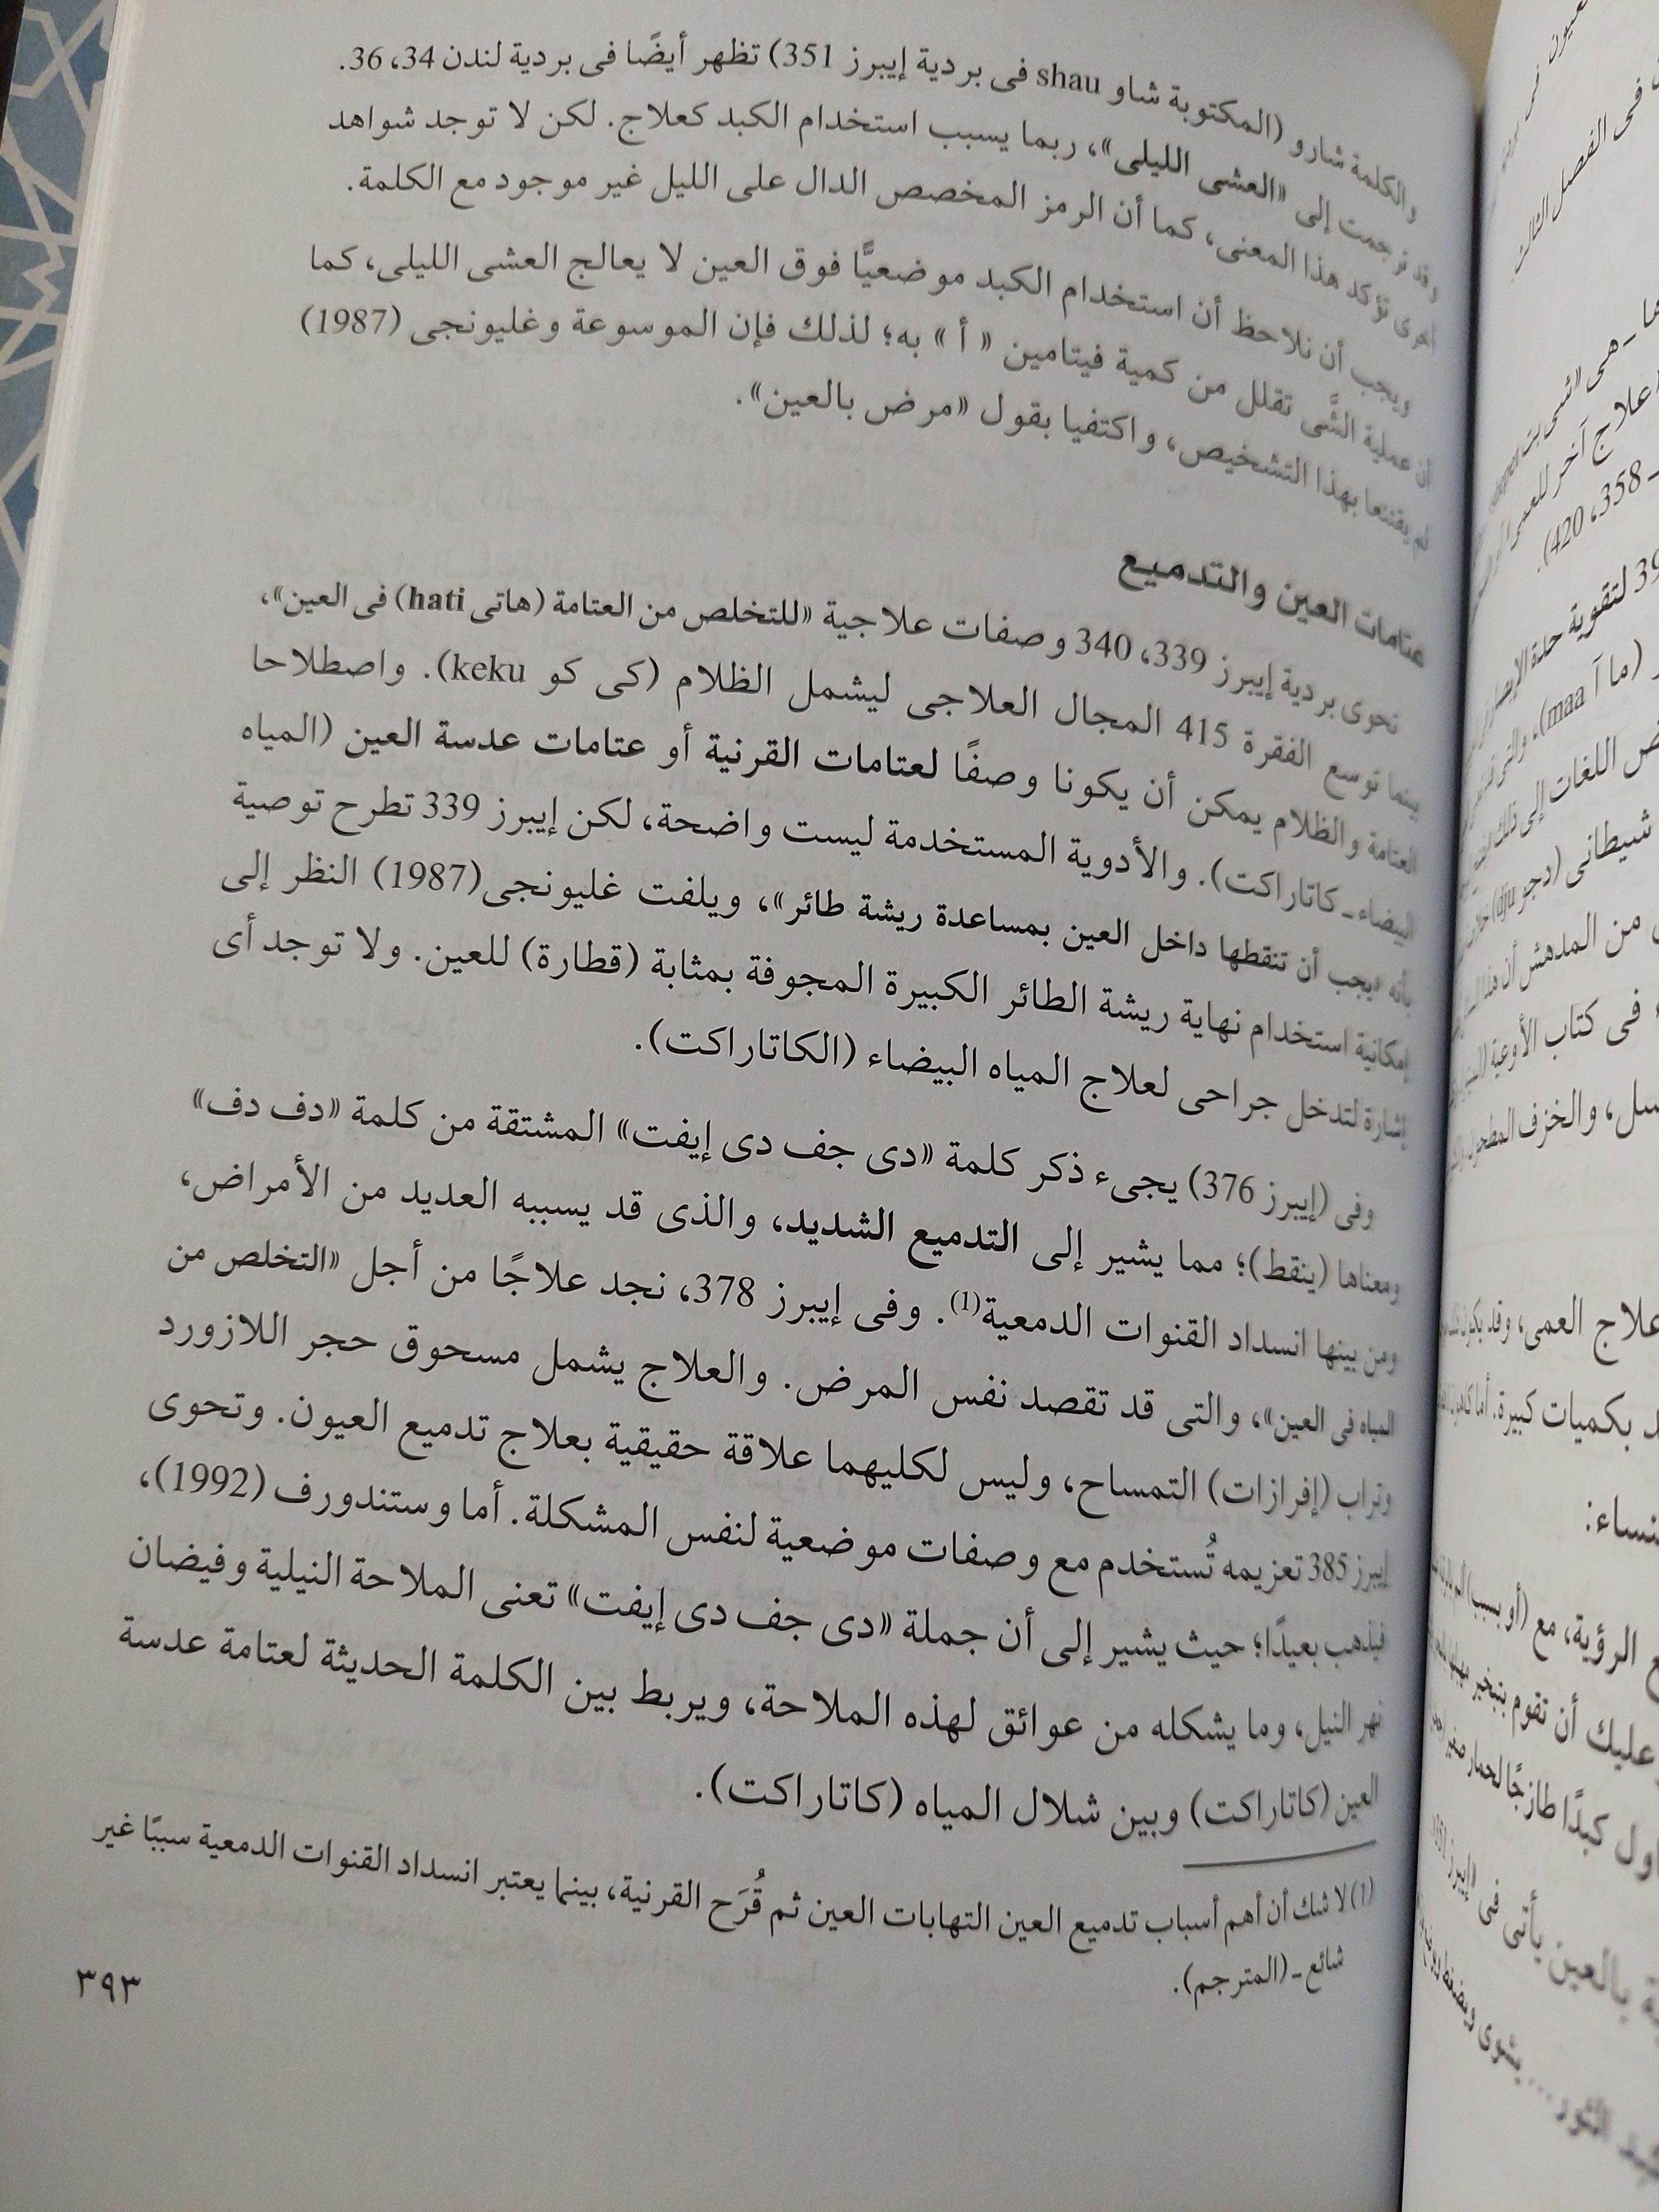 والكلمة شارو (المكتوبة شاو shau فى بردية إيبرز 351) تظهر أيضًا فى بردية لندن 34، 36.
وقد ترجمت إلى «العشى الليلى»، ربما يسبب استخدام الكبد كعلاج. لكن لا توجد شواهد
أخرى تؤكد هذا المعنى، كما أن الرمز المخصص الدال على الليل غير موجود مع الكلمة.
ويجب أن نلاحظ أن استخدام الكبد موضعيًّا فوق العين لا يعالج العشى الليلى، كما
أن عملية الشَّى تقلل من كمية فيتامين « أ » به؛ لذلك فإن الموسوعة وغليونجى (1987)
لم يقتنعا بهذا التشخيص، واكتفيا بقول «مرض بالعين».
عتامات العين والتدميع
تحوى بردية إيبرز 339، 340 وصفات علاجية «للتخلص من العتامة (هاتى hati) فى العين»،
بينما توسع الفقرة 415 المجال العلاجى ليشمل الظلام (كى كو keku). واصطلاحا
العتامة والظلام يمكن أن يكونا وصفًا لعتامات القرنية أو عتامات عدسة العين (المياه
البيضاء ـ كاتاراكت). والأدوية المستخدمة ليست واضحة، لكن إيبرز 339 تطرح توصية
بأنه «يجب أن تنقطها داخل العين بمساعدة ريشة طائر»، ويلفت غليونجى(1987) النظر إلى
إمكانية استخدام نهاية ريشة الطائر الكبيرة المجوفة بمثابة (قطارة) للعين. ولا توجد أى
إشارة لتدخل جراحى لعلاج المياه البيضاء (الكاتاراكت).
وفى (إيبرز 376) يجىء ذكر كلمة «دى جف دى إيفت» المشتقة من كلمة «دف دف»
ومعناها (ينقط)؛ مما يشير إلى التدميع الشديد، والذى قد يسببه العديد من الأمراض،
ومن بينها انسداد القنوات الدمعية(1). وفى إيبرز 378، نجد علاجًا من أجل «التخلص من
المياه فى العين»، والتى قد تقصد نفس المرض. والعلاج يشمل مسحوق حجر اللازورد
وتراب (إفرازات) التمساح، وليس لكليهما علاقة حقيقية بعلاج تدميع العيون. وتحوى
إيبرز 385 تعزيمه تُستخدم مع وصفات موضعية لنفس المشكلة. أما وستندورف (1992)،
فيذهب بعيدًا؛ حيث يشير إلى أن جملة «دى جف دى إيفت» تعنى الملاحة النيلية وفيضان
نهر النيل، وما يشكله من عوائق لهذه الملاحة، ويربط بين الكلمة الحديثة لعتامة عدسة
العين (كاتاراكت) وبين شلال المياه (كاتاراكت).
(1) لا شك أن أهم أسباب تدميع العين التهابات العين ثم قُرَح القرنية، بينما يعتبر انسداد القنوات الدمعية سببًا غير
شائع ـ (المترجم).
٣٩٣